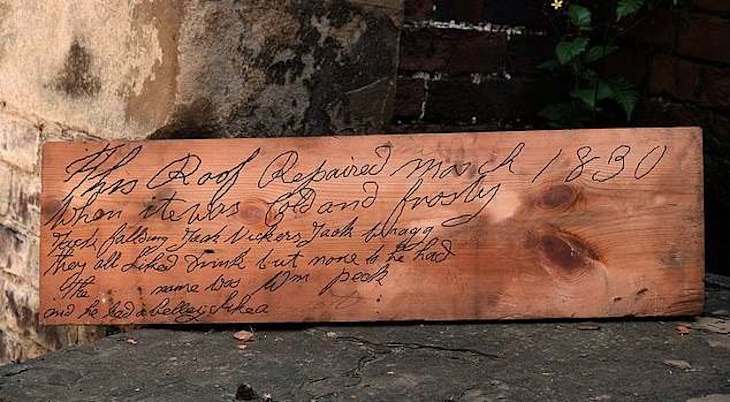 This Roof Repaired march 1830
When it was Cold and frosty
Jack falding Jack Vickers Jack
they all liked drink but none to be had
the name was Wm peck
and he had a belley like a